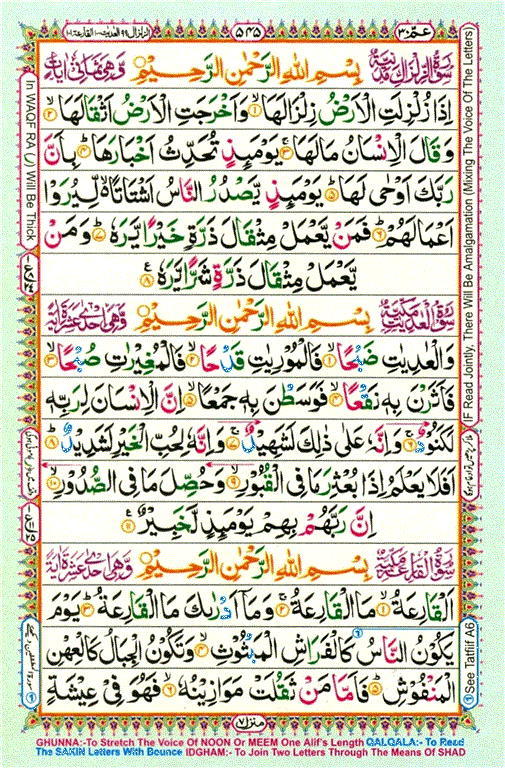 عمّ ٣٠
٥٤٥
الزلزال ٩٩ العديت ١٠٠ القارعة ١٠١
سُوْرَةُ الزِّلْزَالِ مَدَنِيَّةٌ بِسْمِ اللهِ الرَّحْمٰنِ الرَّحِيْمِ وَّهِيَ ثَمَانِيْ اٰيَاتٍ
اِذَا زُلْزِلَتِ الْاَرْضُ زِلْزَالَهَا ۙ‏﴿۱﴾ وَاَخْرَجَتِ الْاَرْضُ اَثْقَالَهَا ۙ‏﴿۲﴾
وَقَالَ الْاِنْسَانُ مَا لَهَا ۚ‏﴿۳﴾ يَوْمَىِٕذٍ تُحَدِّثُ اَخْبَارَهَا ۙ‏﴿۴﴾ بِاَنَّ
رَبَّكَ اَوْحٰى لَهَا ؕ‏﴿۵﴾ يَوْمَىِٕذٍ يَّصْدُرُ النَّاسُ اَشْتَاتًا ۙ۬ لِّيُرَوْا
اَعْمَالَهُمْ ؕ‏﴿۶﴾ فَمَنْ يَّعْمَلْ مِثْقَالَ ذَرَّةٍ خَيْرًا يَّرَهٗ ؕ‏﴿۷﴾ وَمَنْ
يَّعْمَلْ مِثْقَالَ ذَرَّةٍ شَرًّا يَّرَهٗ ‏﴿۸﴾
سُوْرَةُ الْعٰدِيٰتِ مَكِّيَّةٌ بِسْمِ اللهِ الرَّحْمٰنِ الرَّحِيْمِ وَّهِيَ اِحْدٰى عَشْرَةَ اٰيَةً
وَالْعٰدِيٰتِ ضَبْحًا ۙ‏﴿۱﴾ فَالْمُوْرِيٰتِ قَدْحًا ۙ‏﴿۲﴾ فَالْمُغِيْرٰتِ صُبْحًا ۙ‏﴿۳﴾
فَاَثَرْنَ بِهٖ نَقْعًا ۙ‏﴿۴﴾ فَوَسَطْنَ بِهٖ جَمْعًا ۙ‏﴿۵﴾ اِنَّ الْاِنْسَانَ لِرَبِّهٖ
لَكَنُوْدٌ ۚ‏﴿۶﴾ وَاِنَّهٗ عَلٰى ذٰلِكَ لَشَهِيْدٌ ۚ‏﴿۷﴾ وَاِنَّهٗ لِحُبِّ الْخَيْرِ لَشَدِيْدٌ ؕ‏﴿۸﴾
اَفَلَا يَعْلَمُ اِذَا بُعْثِرَ مَا فِى الْقُبُوْرِ ۙ‏﴿۹﴾ وَحُصِّلَ مَا فِى الصُّدُوْرِ ۙ‏﴿۱۰﴾
اِنَّ رَبَّهُمْ بِهِمْ يَوْمَىِٕذٍ لَّخَبِيْرٌ ‏﴿۱۱﴾
سُوْرَةُ الْقَارِعَةِ مَكِّيَّةٌ بِسْمِ اللهِ الرَّحْمٰنِ الرَّحِيْمِ وَّهِيَ اِحْدٰى عَشْرَةَ اٰيَةً
اَلْقَارِعَةُ ۙ‏﴿۱﴾ مَا الْقَارِعَةُ ۚ‏﴿۲﴾ وَمَاۤ اَدْرٰىكَ مَا الْقَارِعَةُ ؕ‏﴿۳﴾ يَوْمَ
يَكُوْنُ النَّاسُ كَالْفَرَاشِ الْمَبْثُوْثِ ۙ‏﴿۴﴾ وَتَكُوْنُ الْجِبَالُ كَالْعِهْنِ
الْمَنْفُوْشِ ؕ‏﴿۵﴾ فَاَمَّا مَنْ ثَقُلَتْ مَوَازِيْنُهٗ ۙ‏﴿۶﴾ فَهُوَ فِيْ عِيْشَةٍ
منزل ٧
In WAQF RA (ر) Will Be Thick
IF Read Jointly, There Will Be Amalgamation (Mixing The Voice Of The Letters)
See Tatfiif A6
GHUNNA:-To Stretch The Voice Of NOON Or MEEM One Alif's Length QALQALA:- To Read
The SAKIN Letters With Bounce IDGHAM:- To Join Two Letters Through The Means Of SHAD